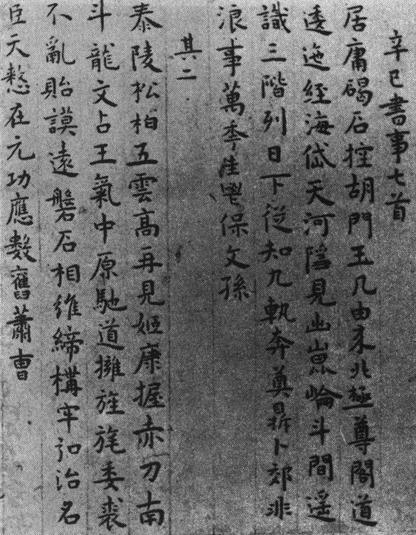 辛巳書事七首
居庸碣石控胡門玉几由来北極尊閣道
逶迤經海岱天河隱見出崑崙斗間遥
識三階列日下從知九軌奔奠鼎卜郊非
浪事萬季佳兆保文孫
其二
泰陵松柏五雲高再見姬康握赤刀南
斗龍文占王氣中原馳道擁旌旄委裘
不亂貽謨遠磐石相維締構牢初治名
臣天憗在元功應數舊蕭曹